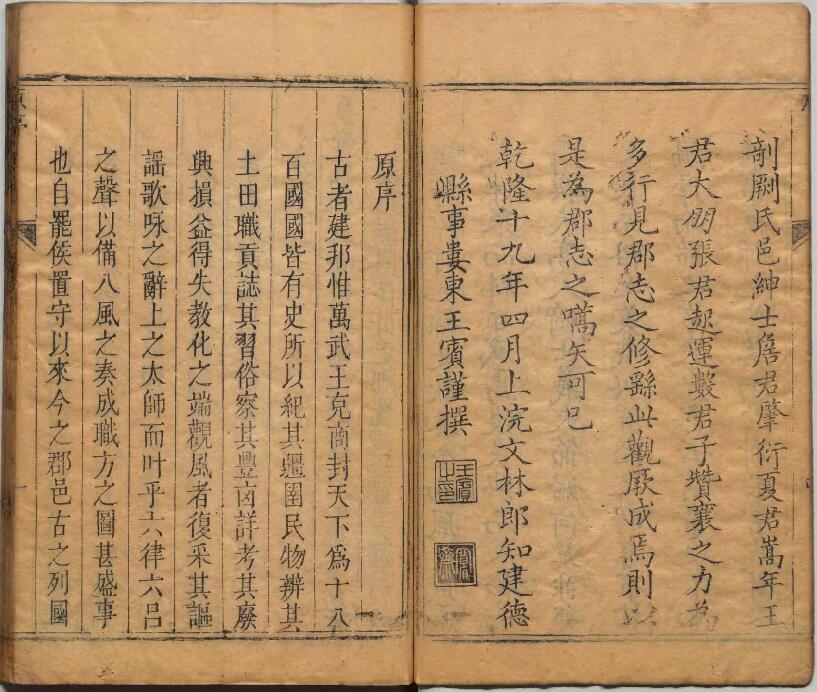 剞劂氏邑紳士詹君肇衍夏君嵩年王
君大朋張君起運數君子贊襄之力為
多行見郡志之修繇此觀厥成焉則以
是為郡志之嚆矢可已
乾隆十九年四月上浣文林郎知建德
縣事婁東王賓謹撰
王賓之印
原序
古者建邦惟萬武王克商封天下爲十八
百國國皆有史所以紀其疆圉民物辨其
土田職貢誌其習俗察其豐凶詳考其廢
興損益得失教化之端觀風者復采其謳
謡歌咏之辭上之太師而叶乎六律六吕
之聲以備八風之奏成職方之圖甚盛事
也自罷侯置守以來今之郡邑古之列國